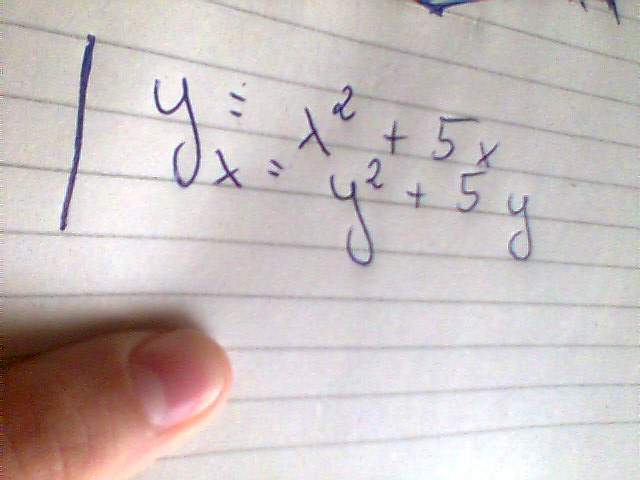 y = x² + 5x
x = y² + 5y